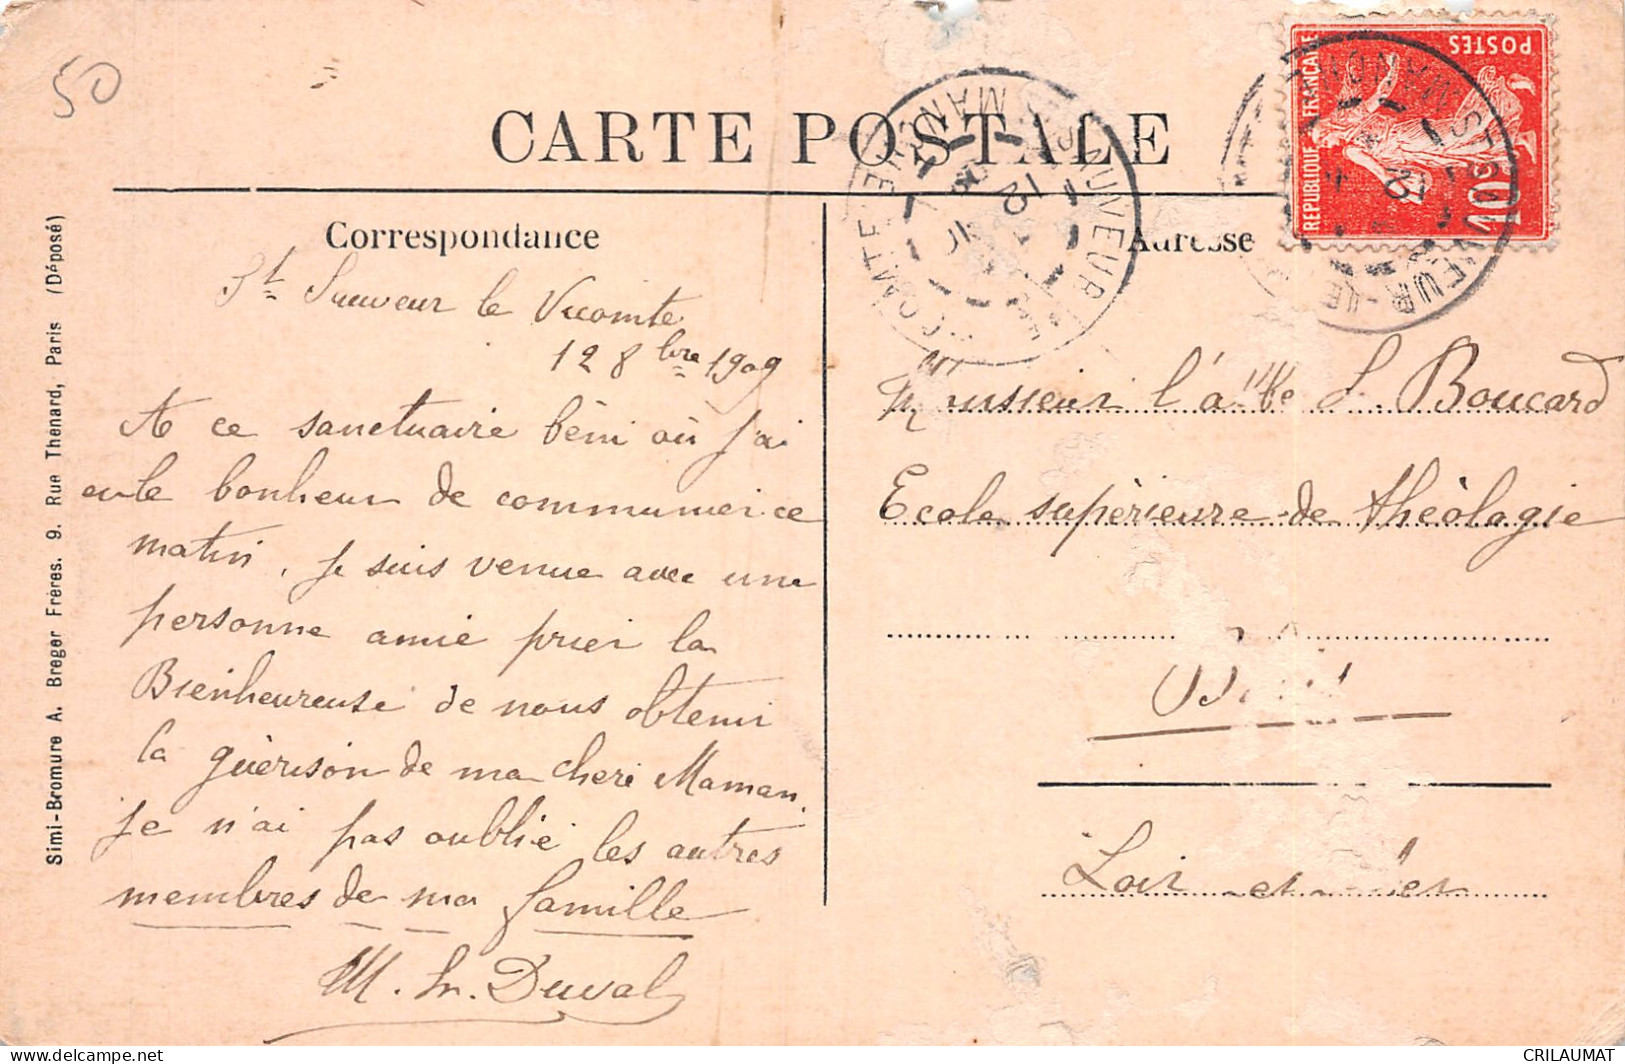 50
CARTE POSTALE
Correspondance
Adresse
St Sauveur le Vicomte
12 8bre 1909
A ce sanctuaire béni où j'ai
eu le bonheur de communier ce
matin, je suis venue avec une
personne amie prier la
Bienheureuse de nous obtenir
la guèrison de ma cheri Maman.
je n'ai pas oublié les autres
membres de ma famille
M. Duval
Monsieur l'abbé L. Boucard
Ecole supèrieure de thèologie
Loir et Cher
Simi-Bromure A. Breger Frères. 9. Rue Thénard, Paris (Déposé)
REPUBLIQUE FRANÇAISE
POSTES
10c
ST SAUVEUR-LE-VICOMTE MANCHE
ST SAUVEUR-LE MANCHE
12
CRILAUMAT